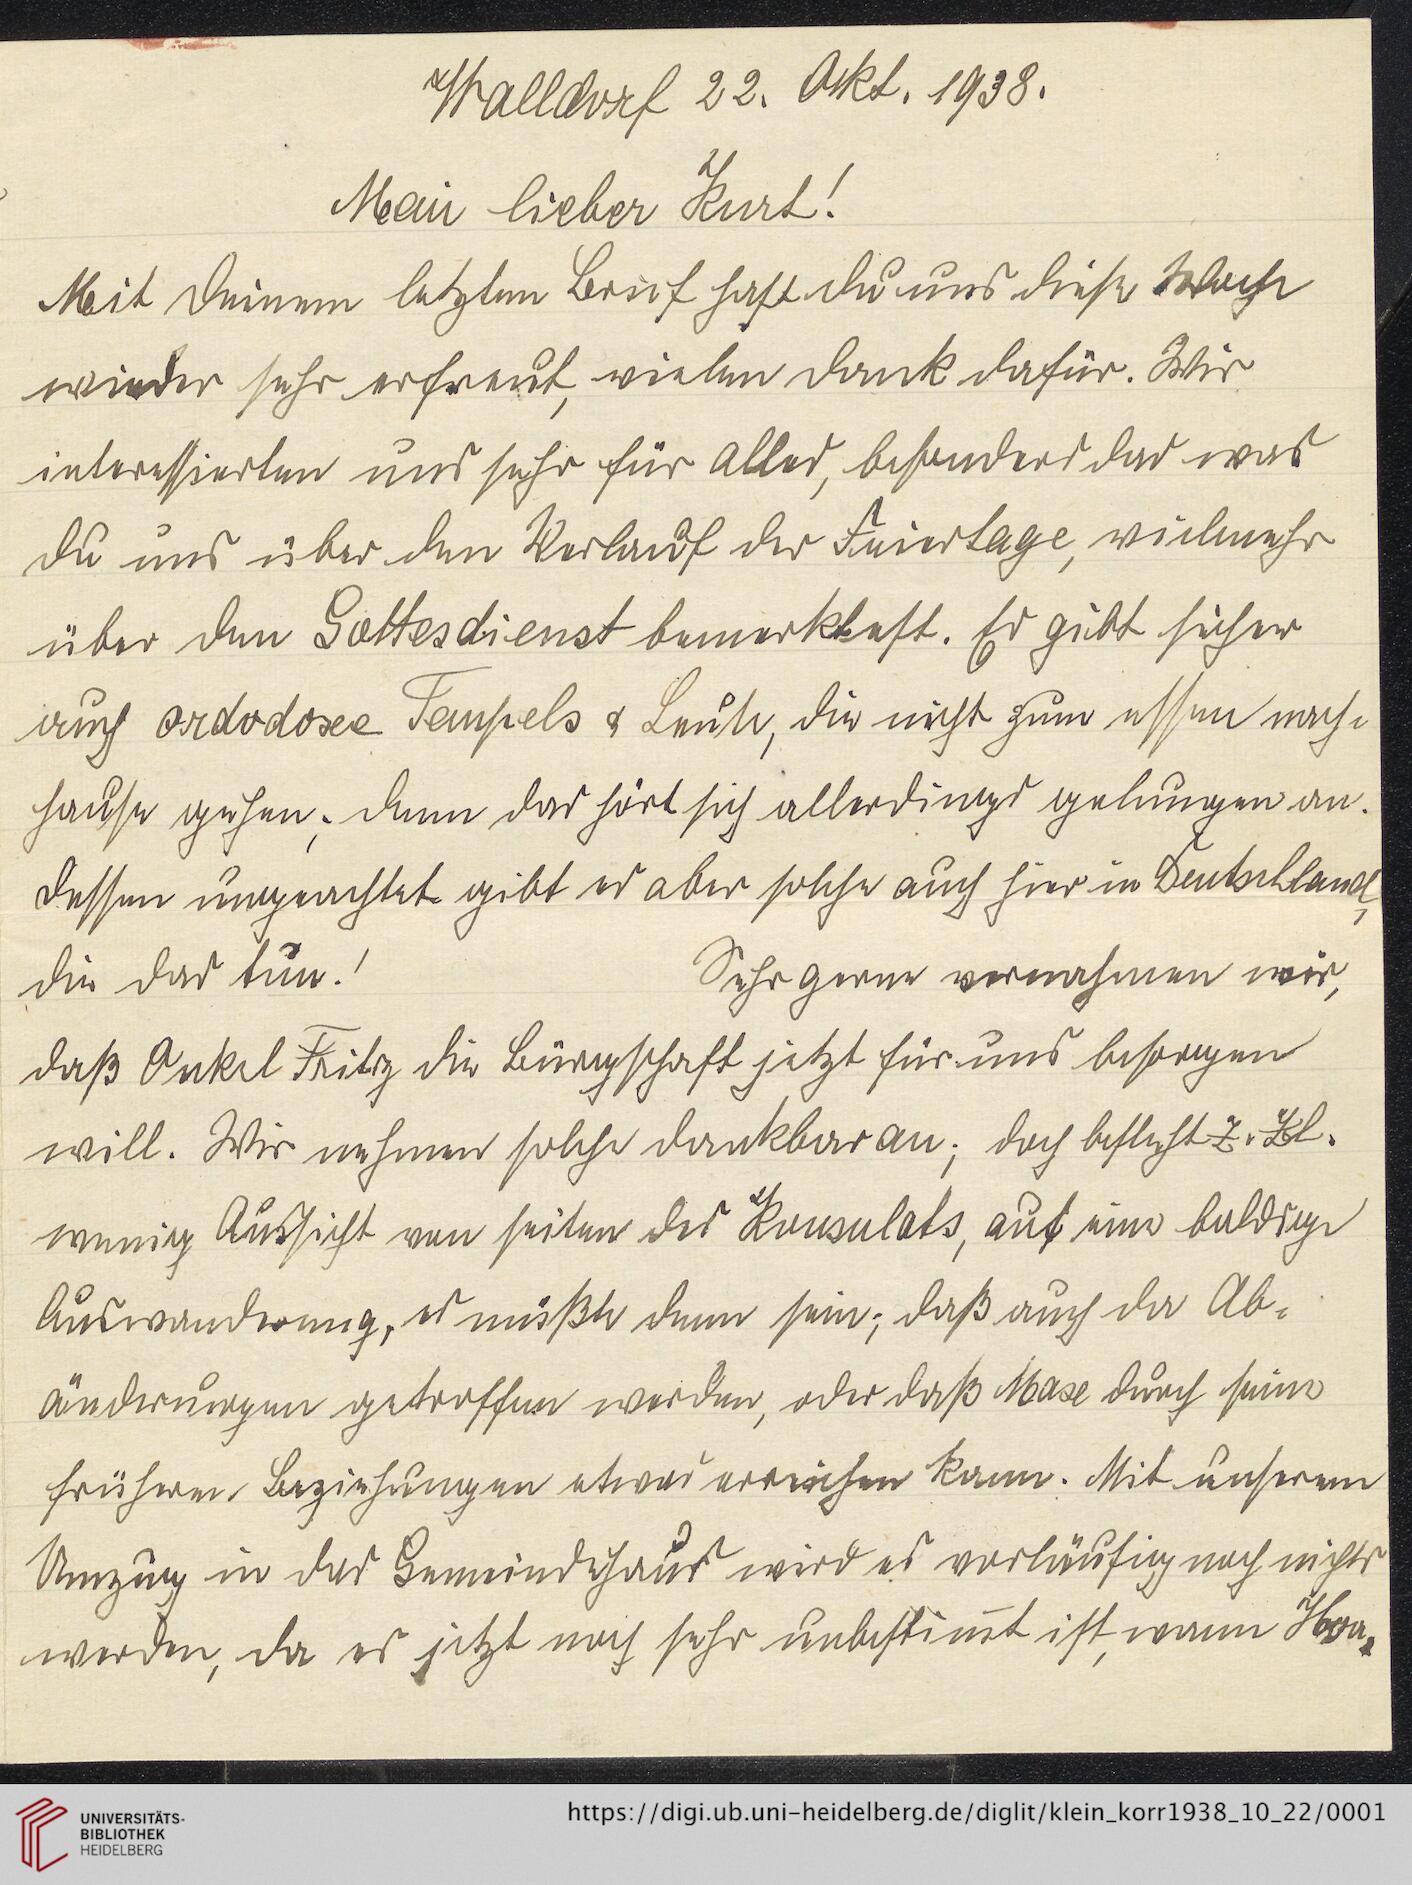 Walldorf 22. Okt. 1938.
Mein lieber Kurt!
Mit Deinem letzten Brief hast du uns diese Woche
wieder sehr erfreut, vielen Dank dafür. Wir
interessierten uns sehr für alles, besonders das was
du uns über den Verlauf der Feiertage, vielmehr
über den Gottesdienst bemerktest. Es gibt sicher
auch ordodoxe Tempels & Leute, die nicht zum essen nach-
hause gehen, denn das hört sich allerdings gelungen an.
Dessen ungeachtet gibt es aber solche auch hier in Deutschland,
die das tun! Sehr gerne vernahmen wir,
daß Onkel Fritz die Bürgschaft jetzt für uns besorgen
will. Wir nehmen solche dankbar an; doch besteht z. Zt.
wenig Aussicht von seiten des Konsulats, auf eine baldige
Auswanderung, es müßte denn sein, daß auch da Ab-
änderungen getroffen werden, oder daß Max durch seine
früheren Beziehungen etwas erreichen kann. Mit unserem
Umzug in das Gemeindehaus wird es vorläufig noch nichts
werden, da es jetzt noch sehr unbestimt ist, wann
UNIVERSITÄTS-
BIBLIOTHEK
HEIDELBERG
https://digi.ub.uni-heidelberg.de/diglit/klein_korr1938_10_22/0001